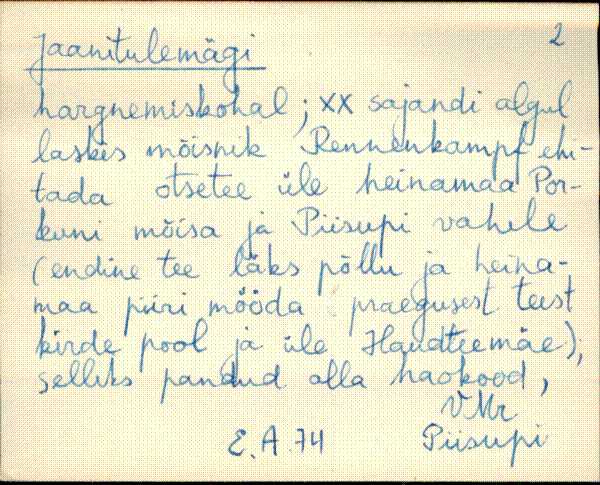 Jaanitulemägi 2
hargnemiskohal; XX sajandi algul
laskis mõisnik Rennenkampf ehi-
tada otsetee üle heinamaa Por-
kuni mõisa ja Piisupi vahele
(endine tee läks põllu ja heina-
maa piiri mööda praegusest teest
kirde pool ja üle Haudteemäe);
selleks pandud alla haokood,
VMr
E.A.74 Piisupi